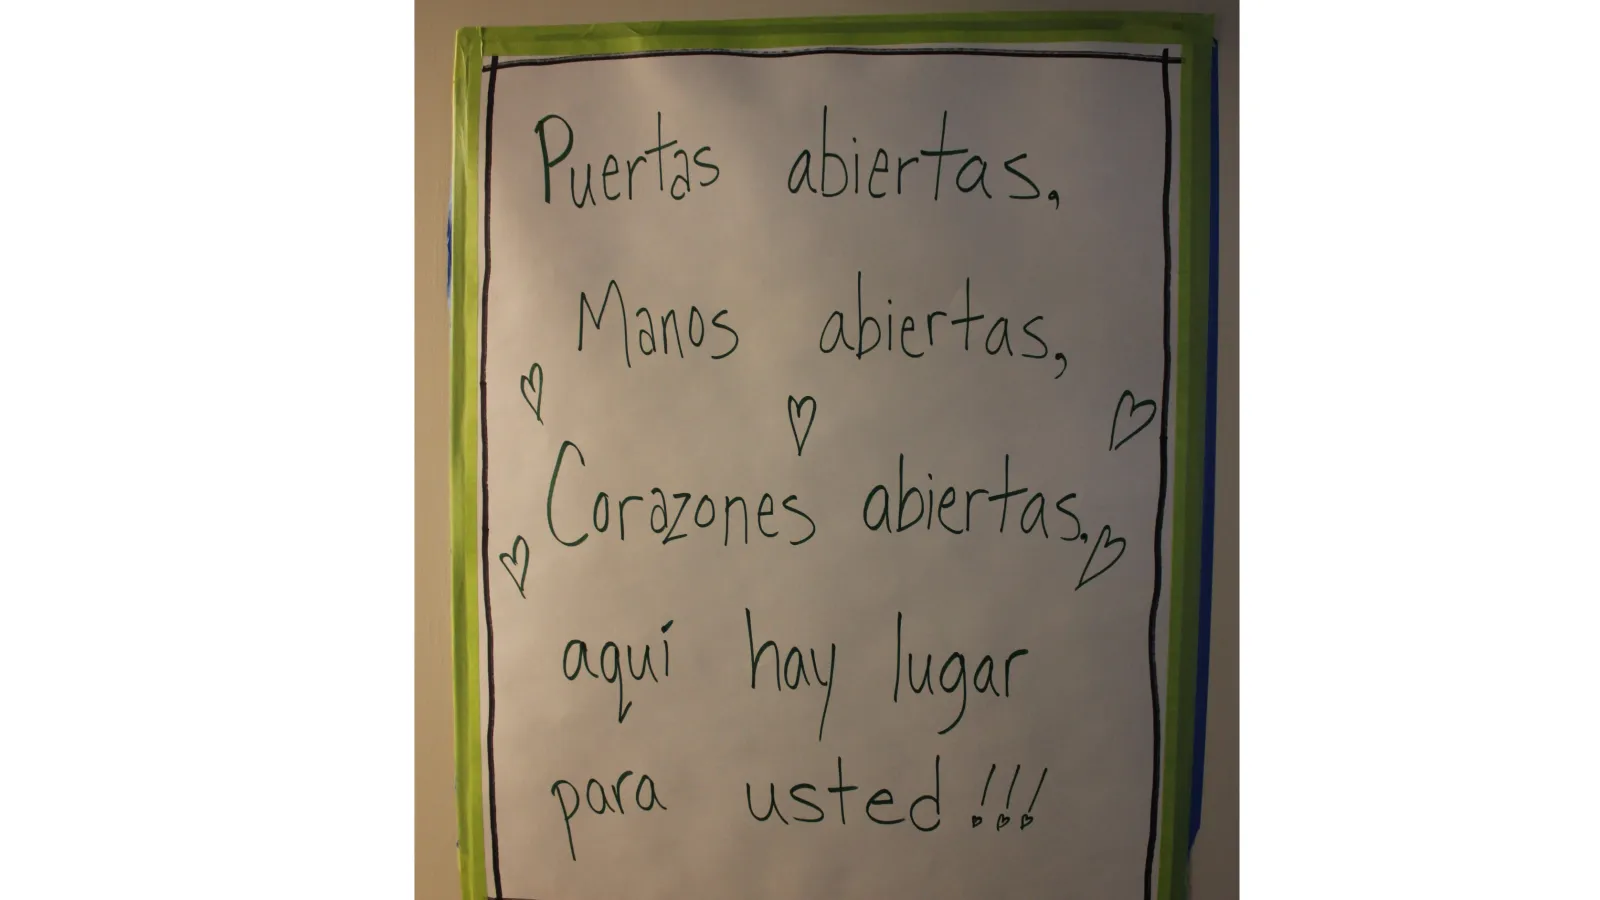 Puertas abiertas,
Manos abiertas,
Corazones abiertas.
aquí hay lugar
para usted!!!